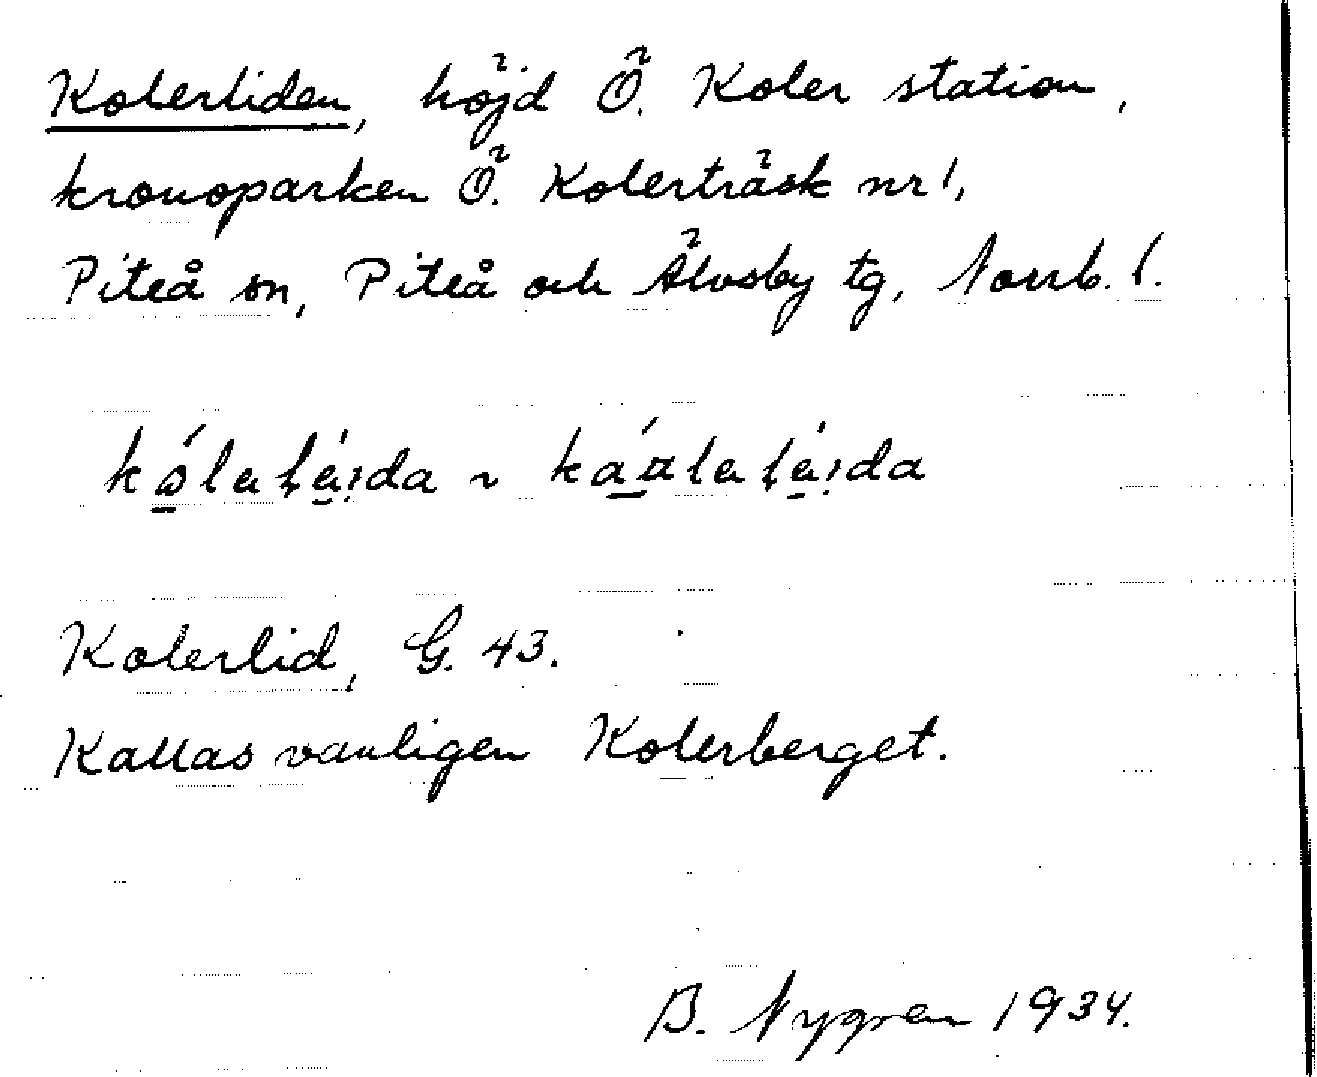 Kolerliden, höjd Ö. Koler station,
kronoparken Ö. Kolerträsk nr 1,
Piteå sn, Piteå och Älvsby tg, Norrb. l.
Kolerlid, G. 43.
Kallas vanligen Kolerberget.
B. Nygren 1934.